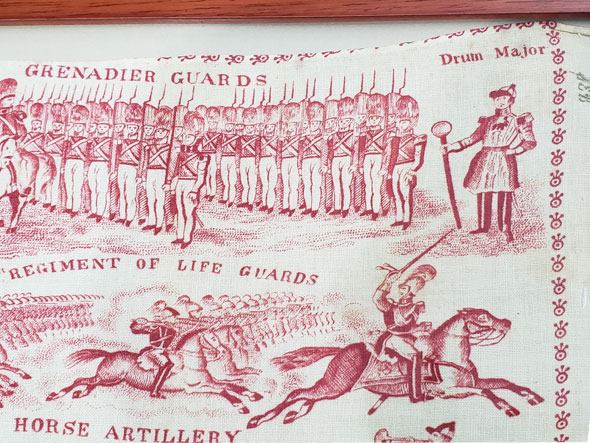 GRENADIER GUARDS
Drum Major
REGIMENT OF LIFE GUARDS
HORSE ARTILLERY